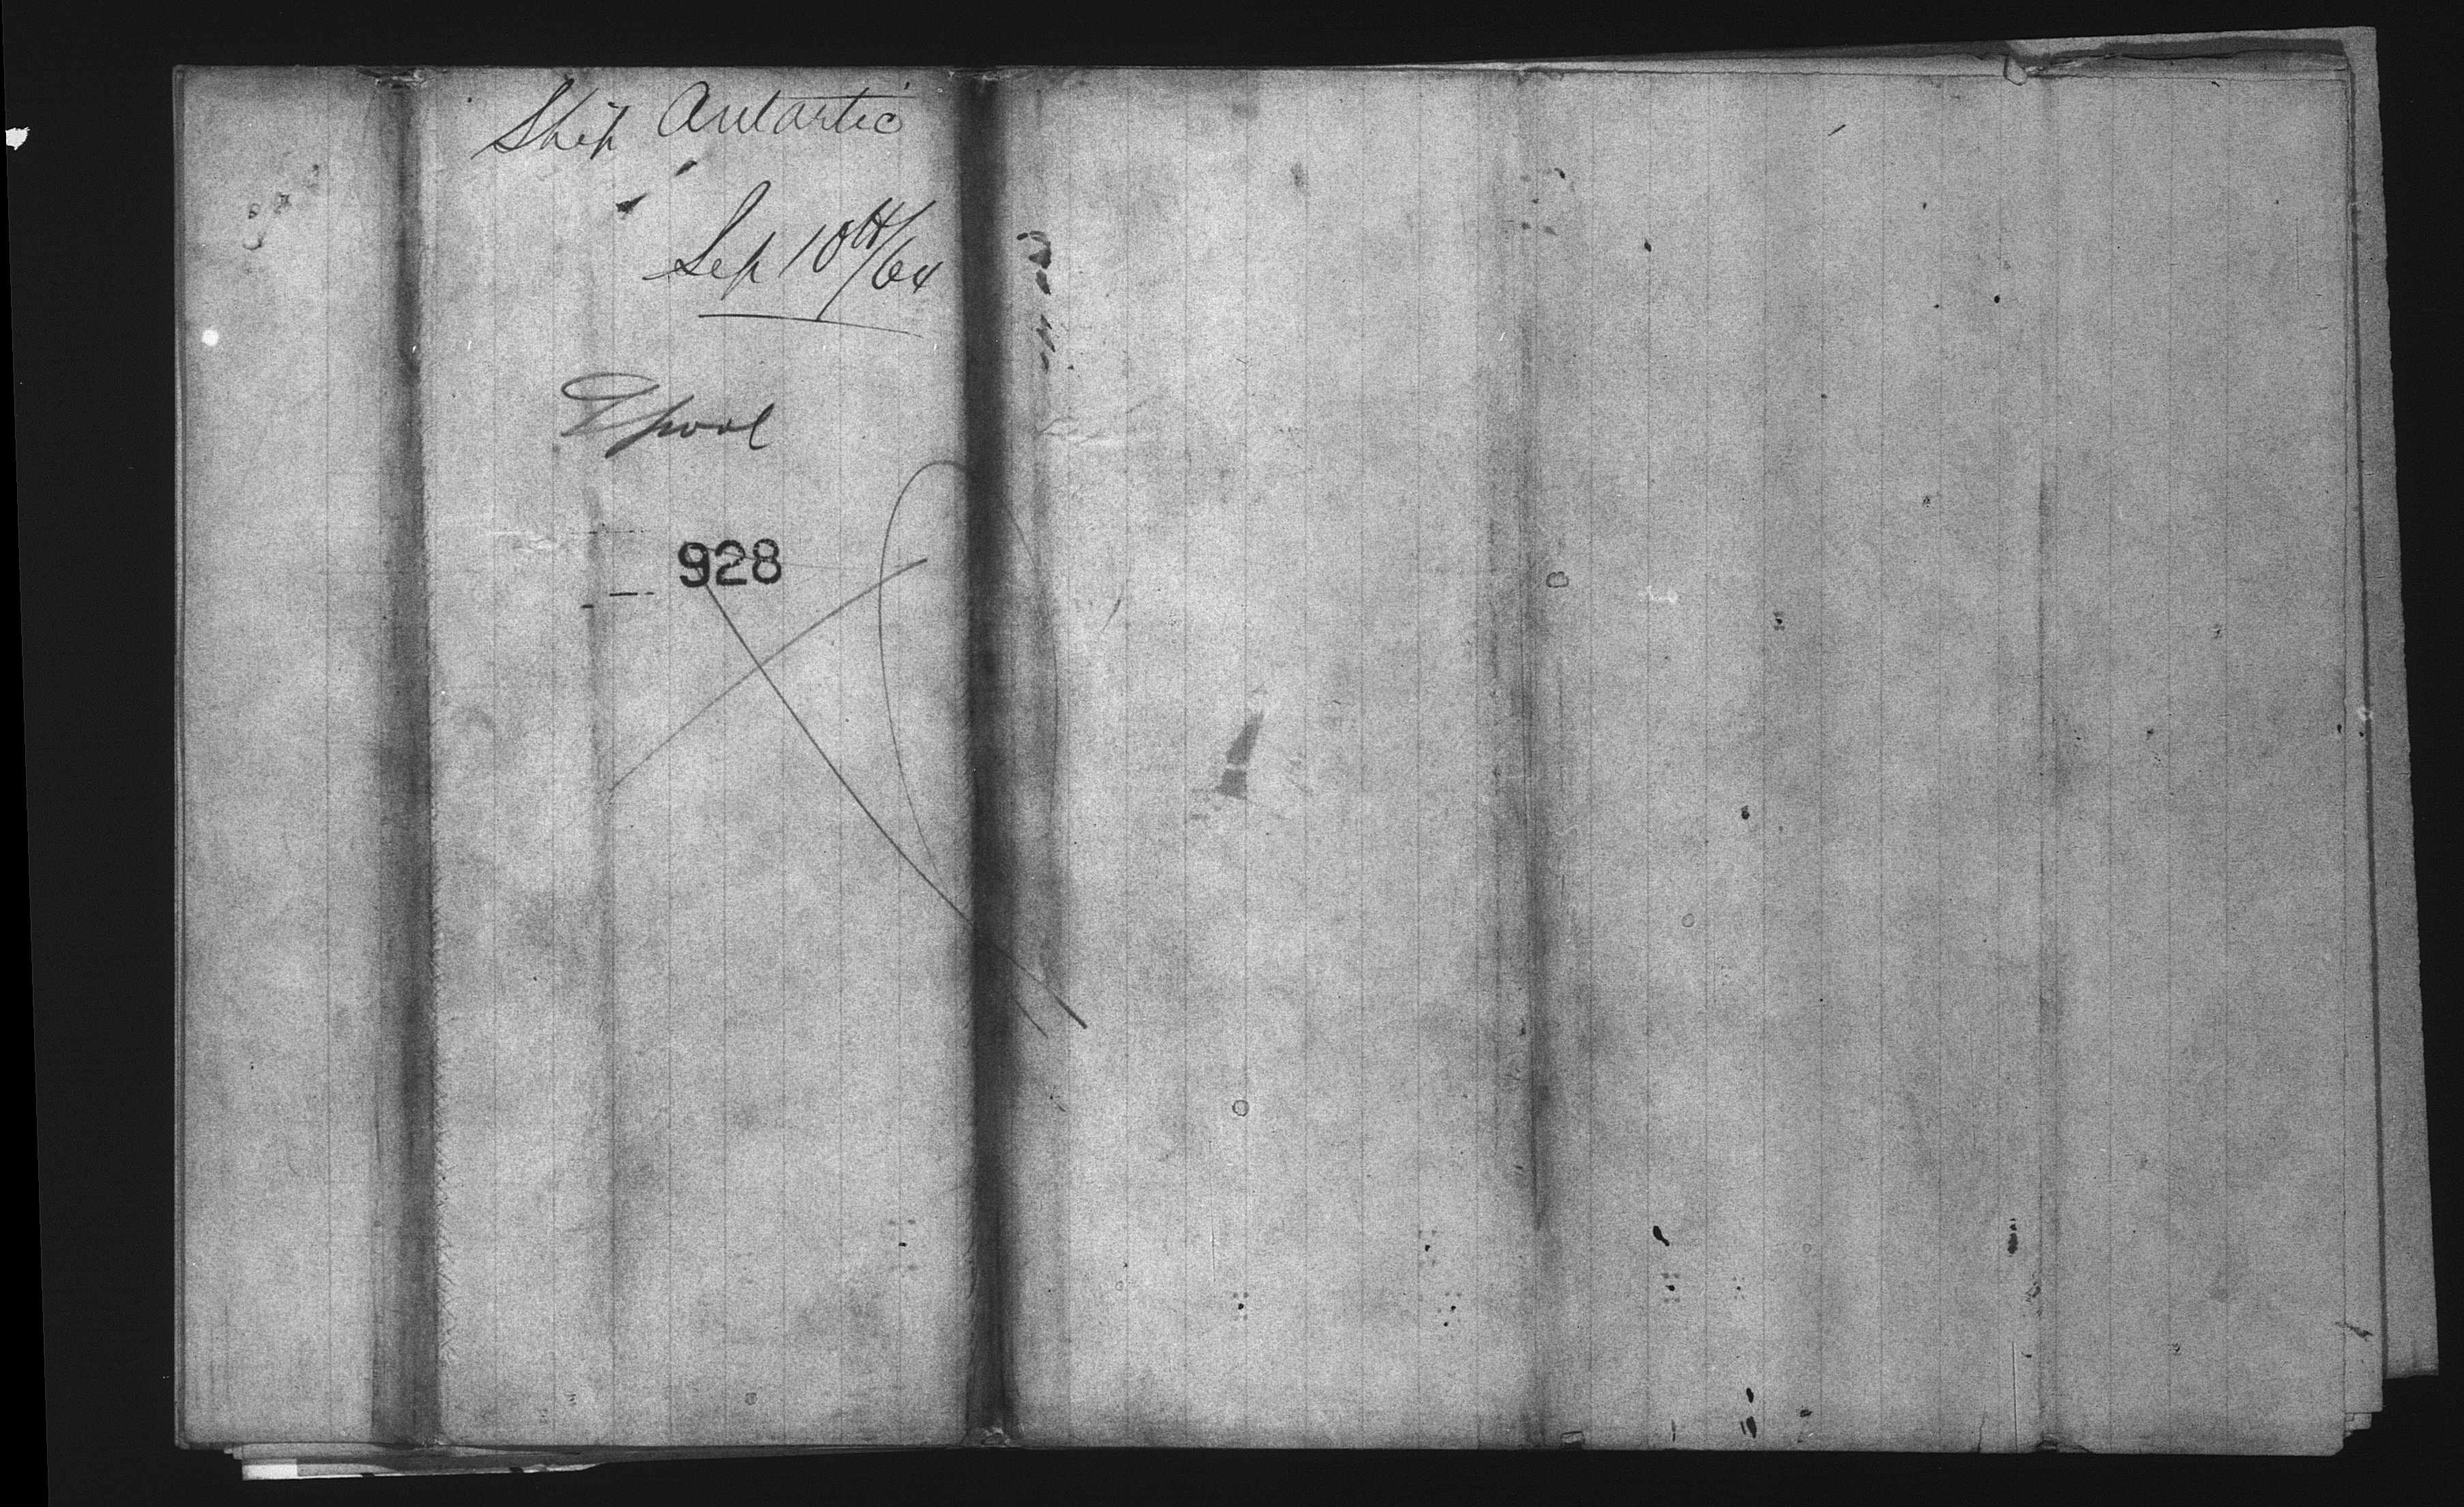 Ship Antartic
Sep 10th/64
Lpool
928